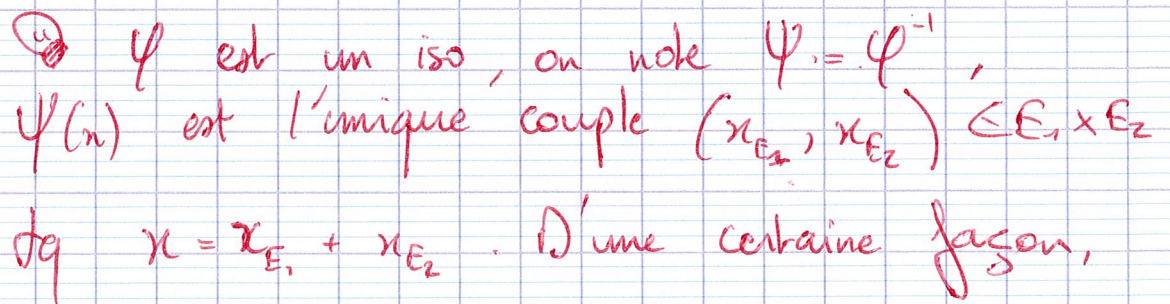 φ est un iso, on note Ψ := φ⁻¹,
Ψ(x) est l'unique couple (x_{E₁}, x_{E₂}) ∈ E₁ × E₂
tq x = x_{E₁} + x_{E₂}. D'une certaine façon,